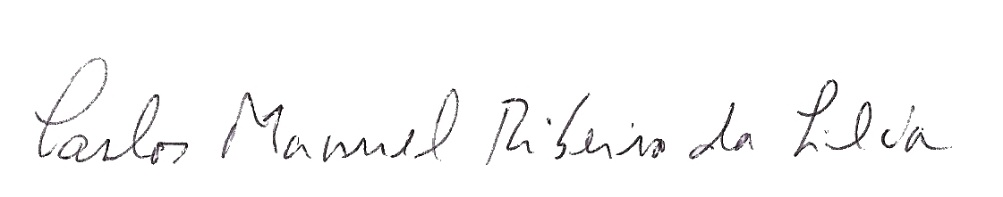 Carlos Manuel Ribeiro da Silva